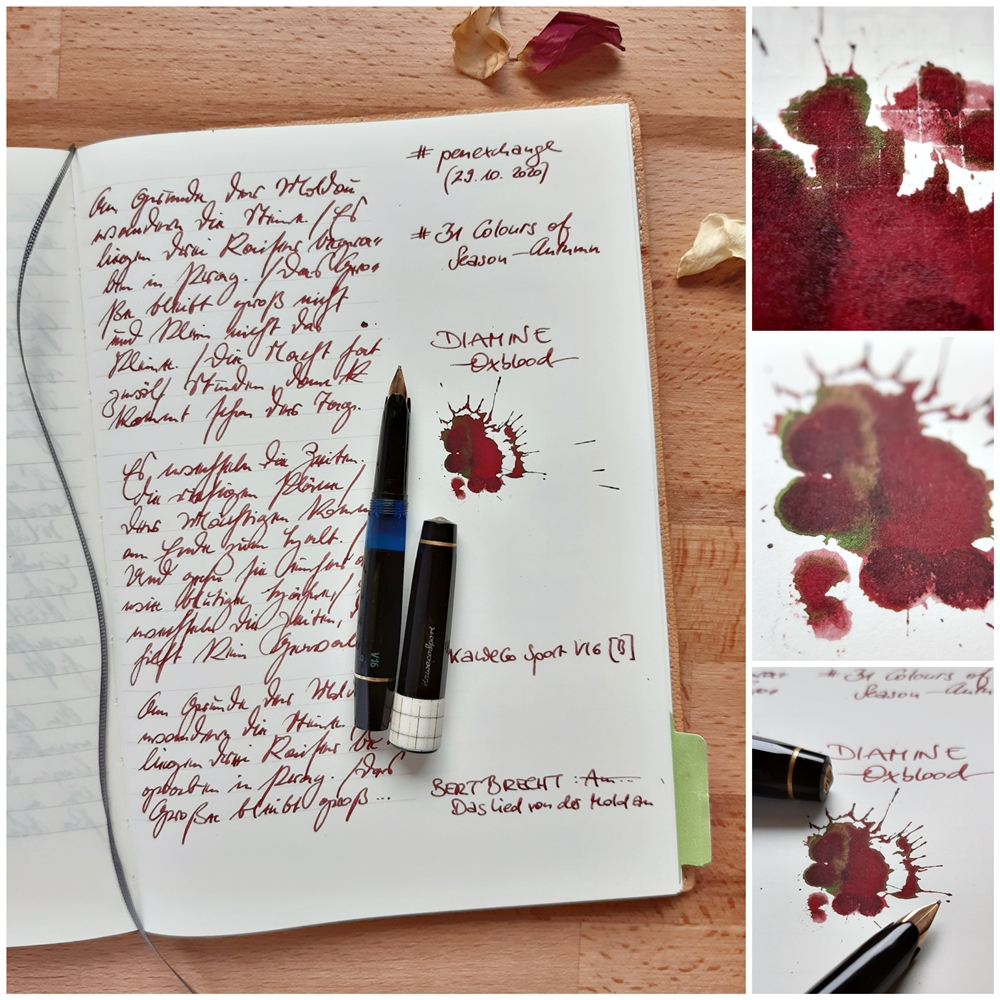 Am Grunde der Moldau
wandern die Steine / Es
liegen drei Kaiser begra-
ben in Prag. / Das Gro-
ße bleibt groß nicht
und klein nicht das
Kleine. / Die Nacht hat
zwölf Stunden, dann
kommt schon der Tag.
Es wechseln die Zeiten.
Die riesigen Pläne /
der Mächtigen komm
am Ende zum Halt. /
Und gehn sie einher
wie blutige Hähne /
wechseln die Zeiten,
hilft kein Gewalt
Am Grunde der Mold
wandern die Steine.
liegen drei Kaiser be-
graben in Prag. / Das
Große bleibt groß...
# penexchange
(29.10.2020)
# 31 Colours of
Season - Autumn
DIAMINE
Oxblood
V16
Kaweco Sport
Kaweco Sport V16 [B]
BERT BRECHT : Am...
Das Lied von der Moldau
# 31 Colours of
Season - Autumn
DIAMINE
Oxblood